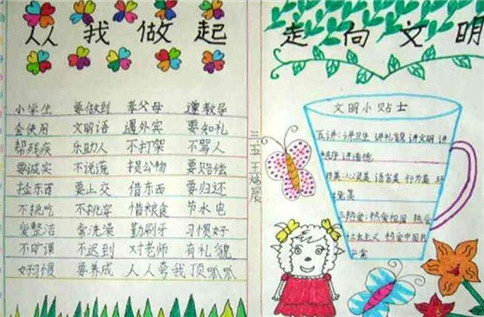 从我做起
小学生 要做到 孝父母 遵教导
会使用 文明语 遇外宾 要知礼
帮残疾 乐助人 不打架 不骂人
要诚实 不说谎 损公物 要赔偿
拾东西 要上交 借东西 要归还
不挑吃 不挑穿 惜粮食 节水电
爱整洁 常洗澡 勤刷牙 习惯好
不旷课 不迟到 对老师 有礼貌
好习惯 要养成 人人夸我顶呱呱
三五 王 辰
走向文明
文明小贴士
五讲:讲卫生 讲礼貌 讲文明 讲
秩序 讲道德
美:心灵美 语言美 行为美 环
境美
三热爱:热爱祖国 热爱
社会主义 热爱中国共
产党